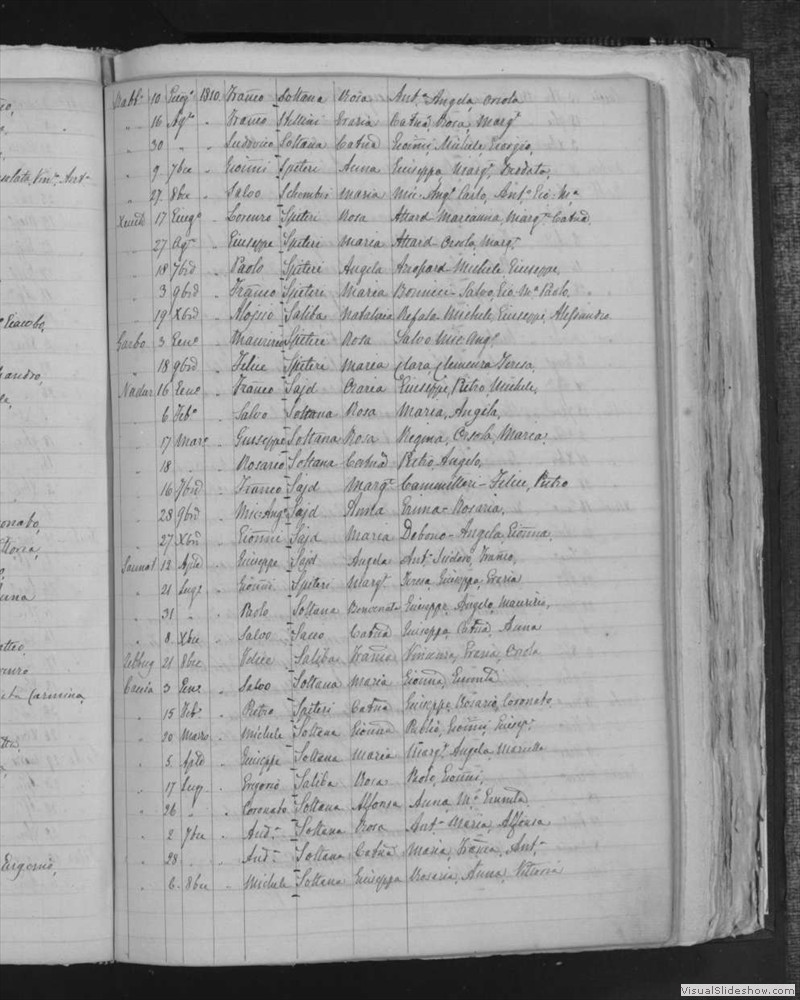 ronato,
Eugenio,
Rabto 10 Giugo 1810 Franco Soltana Rosa Anta Angela Orsola
" 16 Agto " Franco Stellini Grazia Catna Rosa, Margta
" 30 " " Ludovico Soltana Catna Gionni, Michele, Giorgio,
" 9 7bre " Gionni Spiteri Anna Giuseppa, Margta Deodato,
" 27 8bre " Salvo Schembri Maria Mic-Ango Carlo, Anto Gio Ma
17 Giugo " Lorenzo Spiteri Rosa Attard Marianna, Margta Catna
" 27 Agto " Giuseppe Spiteri Maria Attard Orsola, Margta
" 18 7bre " Paolo Spiteri Angela Azopard Michele Giuseppe,
" 3 9bre " Franco Spiteri Maria Bonnici - Salvo, Gio Ma Paolo,
" 19 Xbre " Aloisio Saliba Natalizia Refalo Michele, Giuseppe, Alessandro
Garbo 3 Geno " Maurizio Spiteri Rosa Salvo Mic Ango
" 18 9bre " Felice Spiteri Maria Clara, Clemenza Teresa,
Nadur 16 Geno " Franco Sajd Grazia Giuseppe, Pietro, Michele,
" 6 Febo " Salvo Soltana Rosa Maria, Angela,
" 17 Marzo " Giuseppe Soltana Rosa Regina, Orsola, Maria,
" 18 " " Rosario Soltana Catna Pietro, Angelo,
" 16 7bre " Franco Sajd Margta Cammilleri - Felice, Pietro
" 28 9bre " Mic-Ango Sajd Anna - Rosaria,
" 27 Xbre " Gionni Sajd Maria Debono - Angela, Gionna,
Sannat 12 Aple " Giuseppe Sajd Angela Anto Isidoro, Franco,
" 21 Lugo " Gionni Spiteri Margta Teresa, Giuseppa, Grazia
" 31 " " Paolo Soltana Benvenuta Giuseppe, Angelo, Maurizio,
" 8 Xbre " Salvo Catna Giuseppa, Catna Anna
Zebbug 21 8bre " Felice Saliba Franca Vincenza, Grazia, Orsola
3 Geno " Salvo Soltana Maria Gionna,
" 15 Febo " Pietro Spiteri Catna Giuseppe, Rosario, Coronato
" 20 Marzo " Michele Soltana Gionna Publio, Gionni, Giuspe
" 5 Aple " Giuseppe Soltana Maria Margta Angela,
" 17 Lugo " Saliba Rosa Paolo, Gionni,
" 26 " " Coronato Soltana Alfonsa Anna Ma
" 2 7bre " Anto Soltana Rosa Anta Maria, Alfonsa
" 28 " " Anto Soltana Catna Maria, Franca, Anta
" 6 8bre " Michele Soltana Giuseppa Rosaria, Anna, Vittoria
VisualSlideshow.com